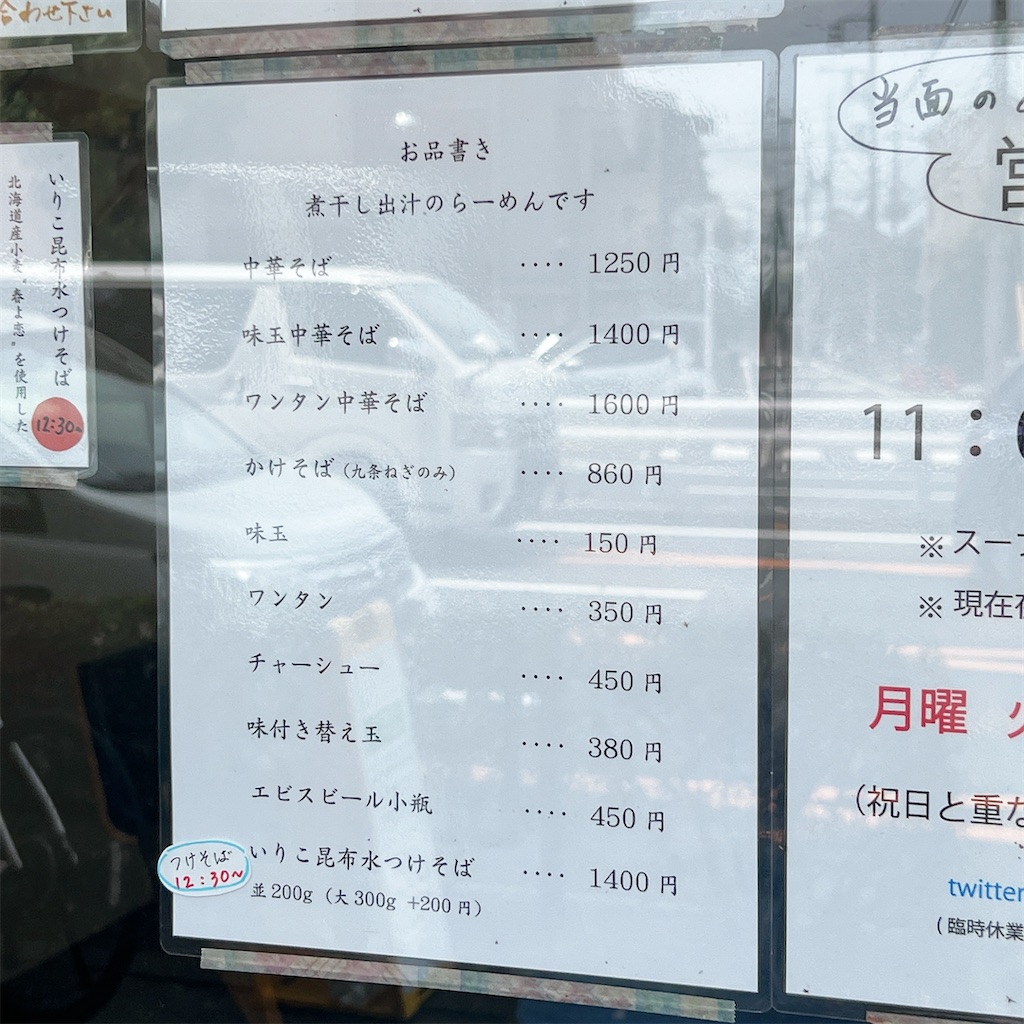 合わせ下さい
いりこ昆布水つけそば
北海道産小麦"春よ恋"を使用した
12:30~
お品書き
煮干し出汁のらーめんです
中華そば ‥‥ 1250 円
味玉中華そば ‥‥ 1400 円
ワンタン中華そば ‥‥ 1600 円
かけそば（九条ねぎのみ） ‥‥ 860 円
味玉 ‥‥ 150 円
ワンタン ‥‥ 350 円
チャーシュー ‥‥ 450 円
味付き替え玉 ‥‥ 380 円
エビスビール小瓶 ‥‥ 450 円
つけそば
12:30~
いりこ昆布水つけそば ‥‥ 1400 円
並200g（大300g +200 円）
当面の
営
11：
※ スープ
※ 現在
月曜
（祝日と重な
twitter
（臨時休業